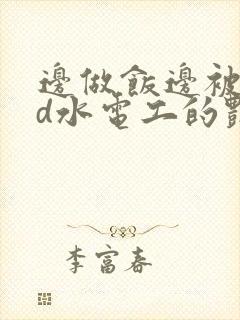 邊做飯邊被
d水電工的
李富春